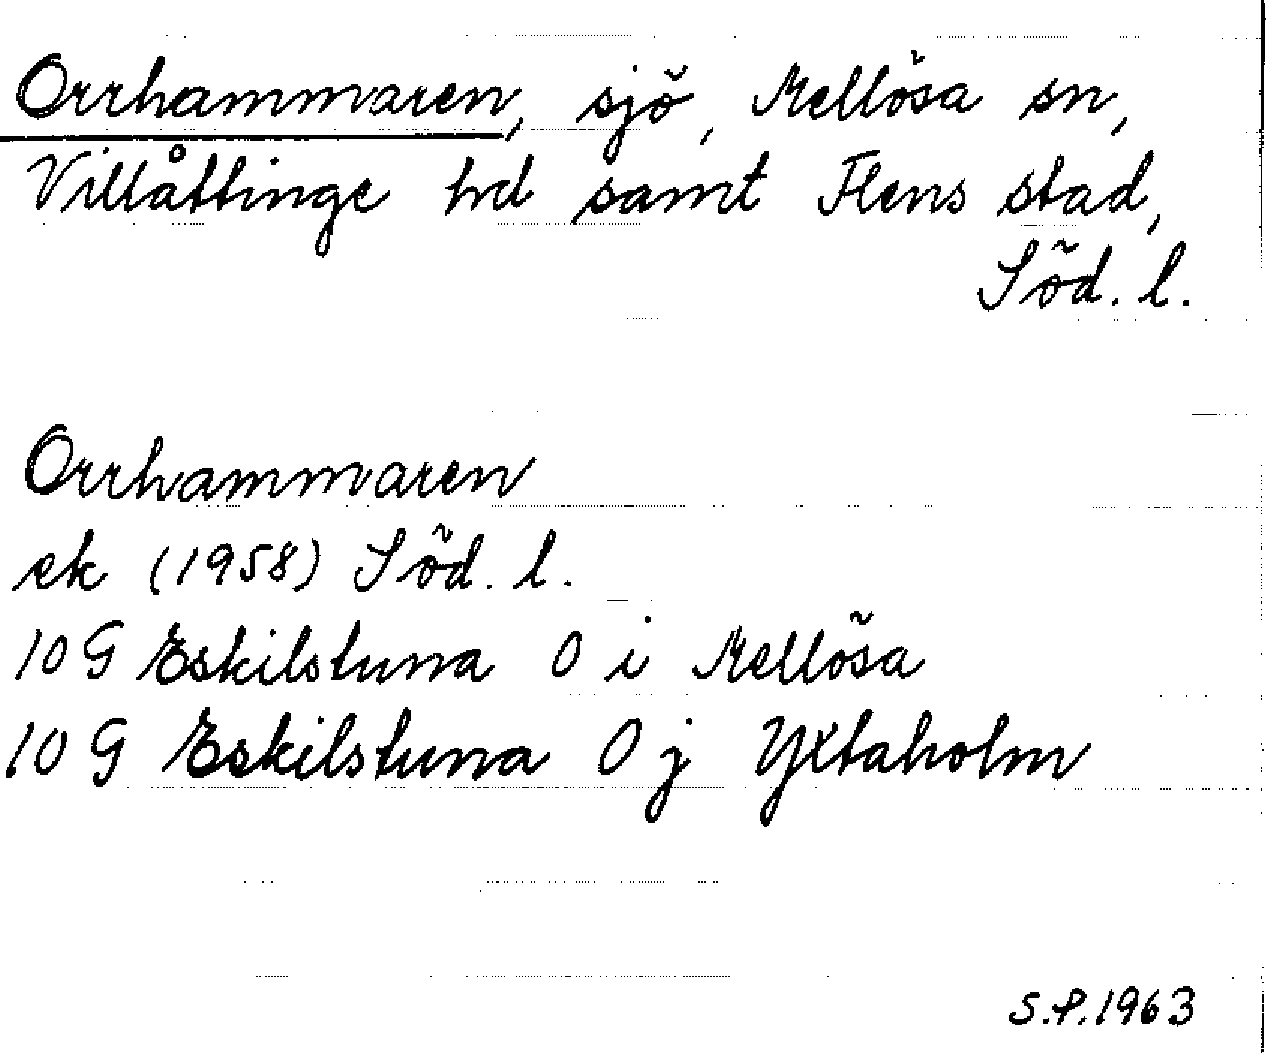 Orrhammaren, sjö, Mellösa sn,
Villåttinge hd samt Flens stad,
Söd. l.
Orrhammaren
ek (1958) Söd. l.
10 G Eskilstuna 0 i Mellösa
10 G Eskilstuna 0 j Yxtaholm
S.P. 1963